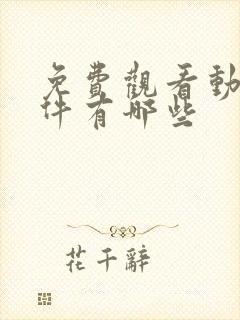 免費觀看動
件有哪些
花千辭